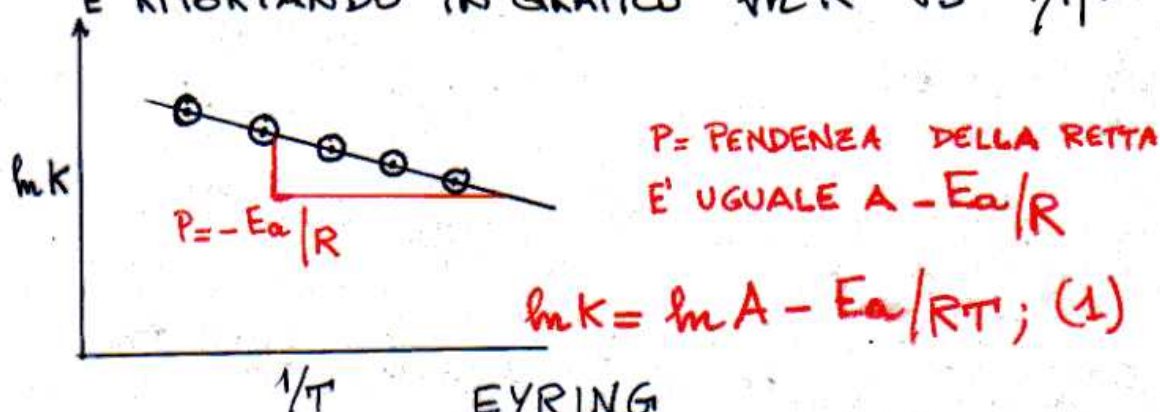 E RIPORTANDO IN GRAFICO ln K VS 1/T
ln K
P = PENDENZA DELLA RETTA
E' UGUALE A - Ea/R
P = - Ea/R
ln K = ln A - Ea/RT ; (1)
1/T
EYRING